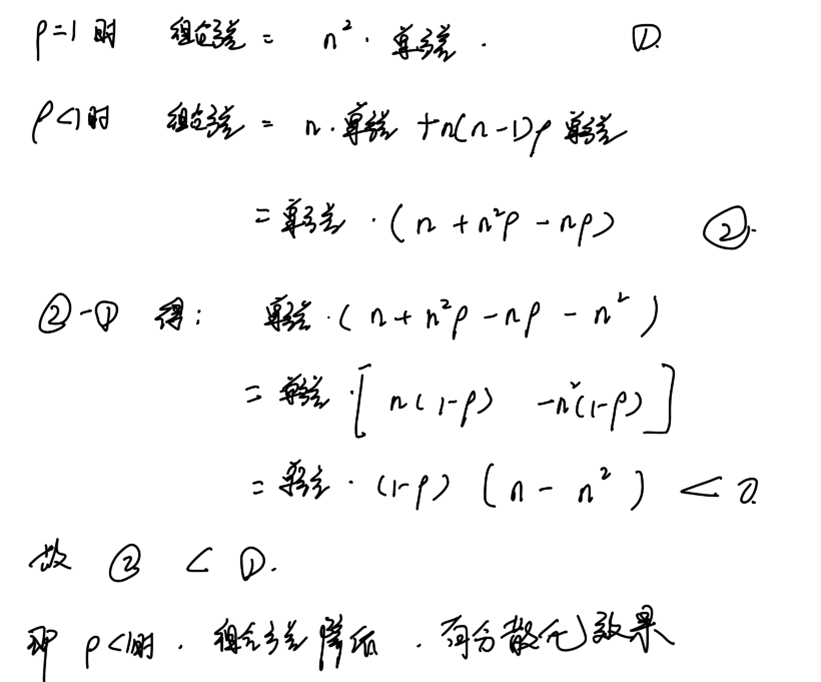 ρ=1时 组合方差 = n²·单方差. ①
ρ<1时 组合方差 = n·单方差 + n(n-1)ρ 单方差
= 单方差·(n + n²ρ - nρ) ②.
②-① 得: 单方差·(n + n²ρ - nρ - n²)
= 单方差·[n(1-ρ) -n²(1-ρ)]
= 单方差·(1-ρ)(n - n²) < 0.
故 ② < ①.
即 ρ<1时. 组合方差降低. 有分散化效果